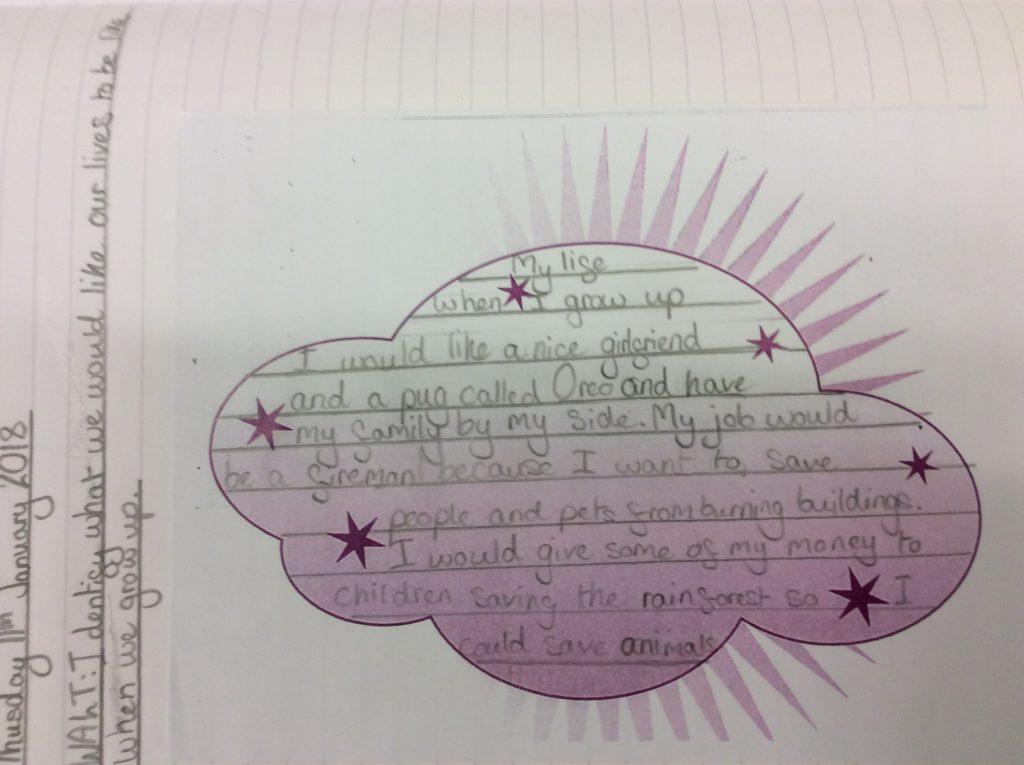 Thusday 11th January 2018
WAhT: I dentify what we would like our lives to be like
when we grow up.
My life
when I grow up
I would like a nice girlfriend
and a pug called Oreo and have
my family by my side. My job would
be a fireman because I want to save
people and pets from burning buildings.
I would give some of my money to
children saving the rainforest so I
could save animals